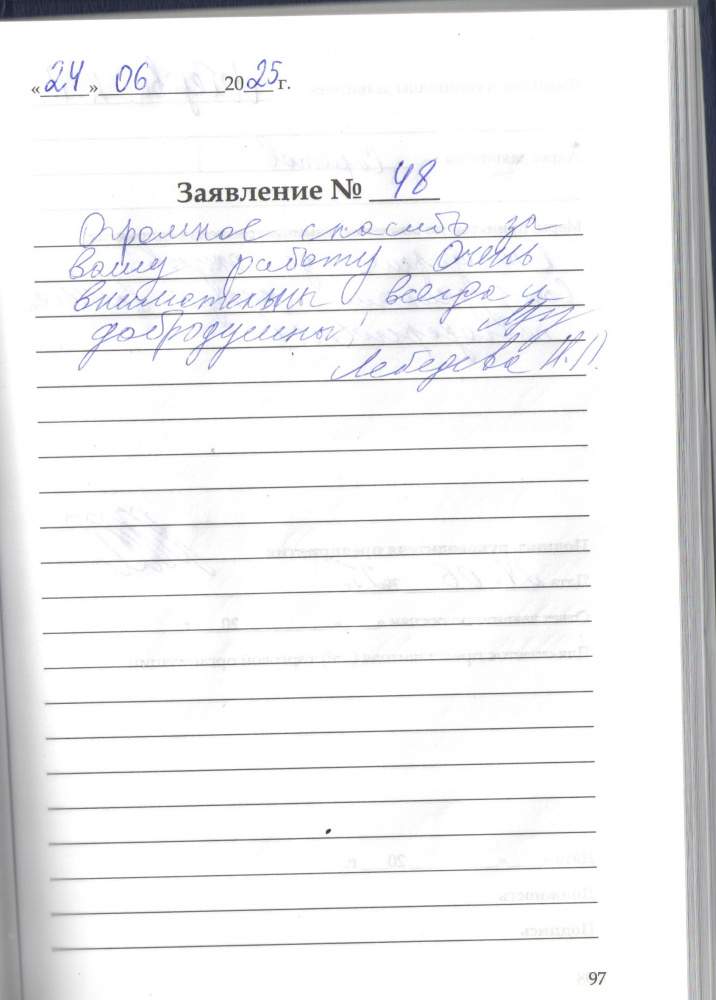 «24» 06 2025 г.
Заявление № 48
Огромное спасибо за
вашу работу. Очень
внимательны, всегда и
добродушны!
Лебедева Н.П.
97